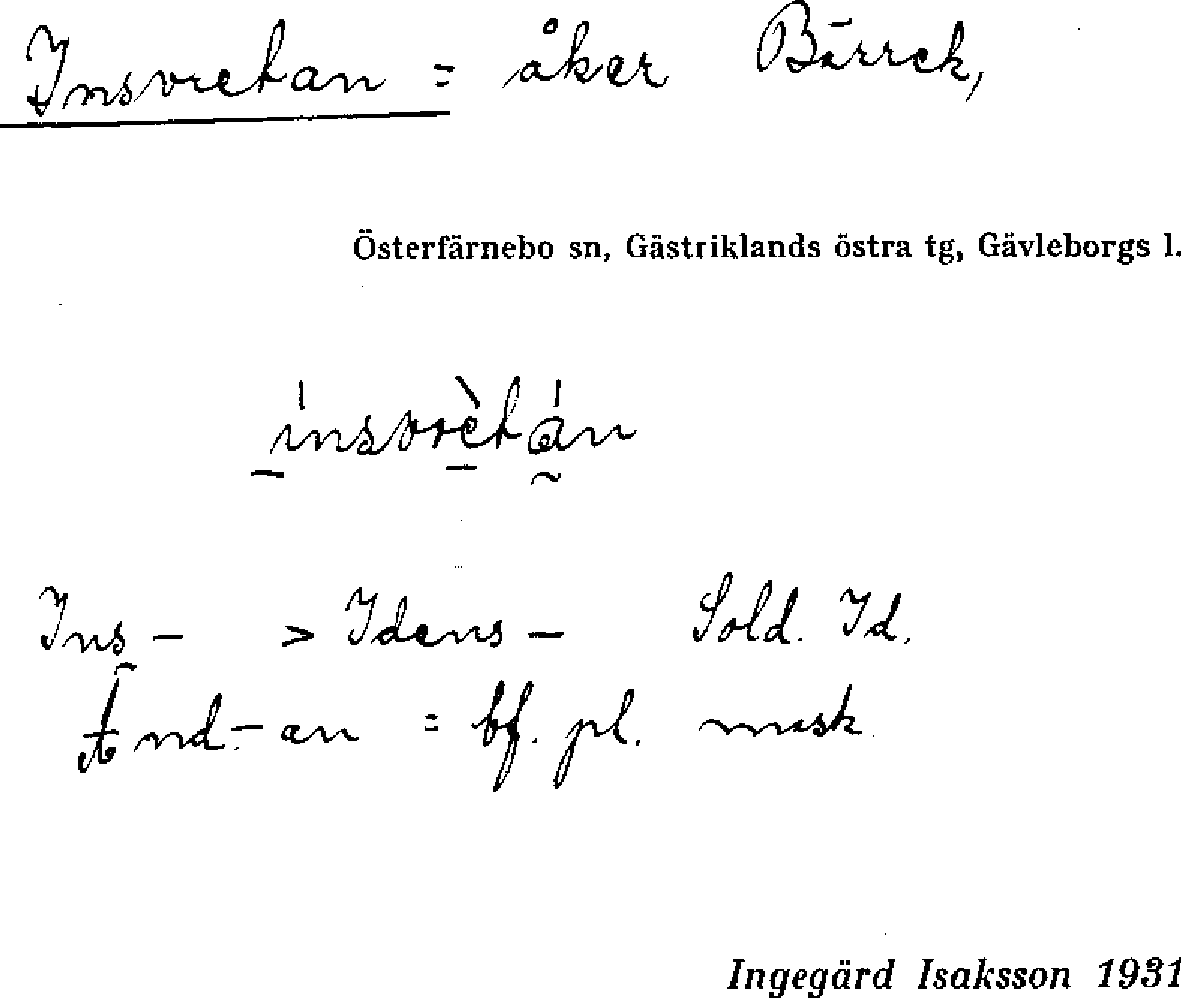 Insvretan = åker Bärrek,
Österfärnebo sn, Gästriklands östra tg, Gävleborgs l.
ìnsvrètán
Ins – > Idens – Sold. Id.
Änd.- an = bf. pl. mask.
Ingegärd Isaksson 1931